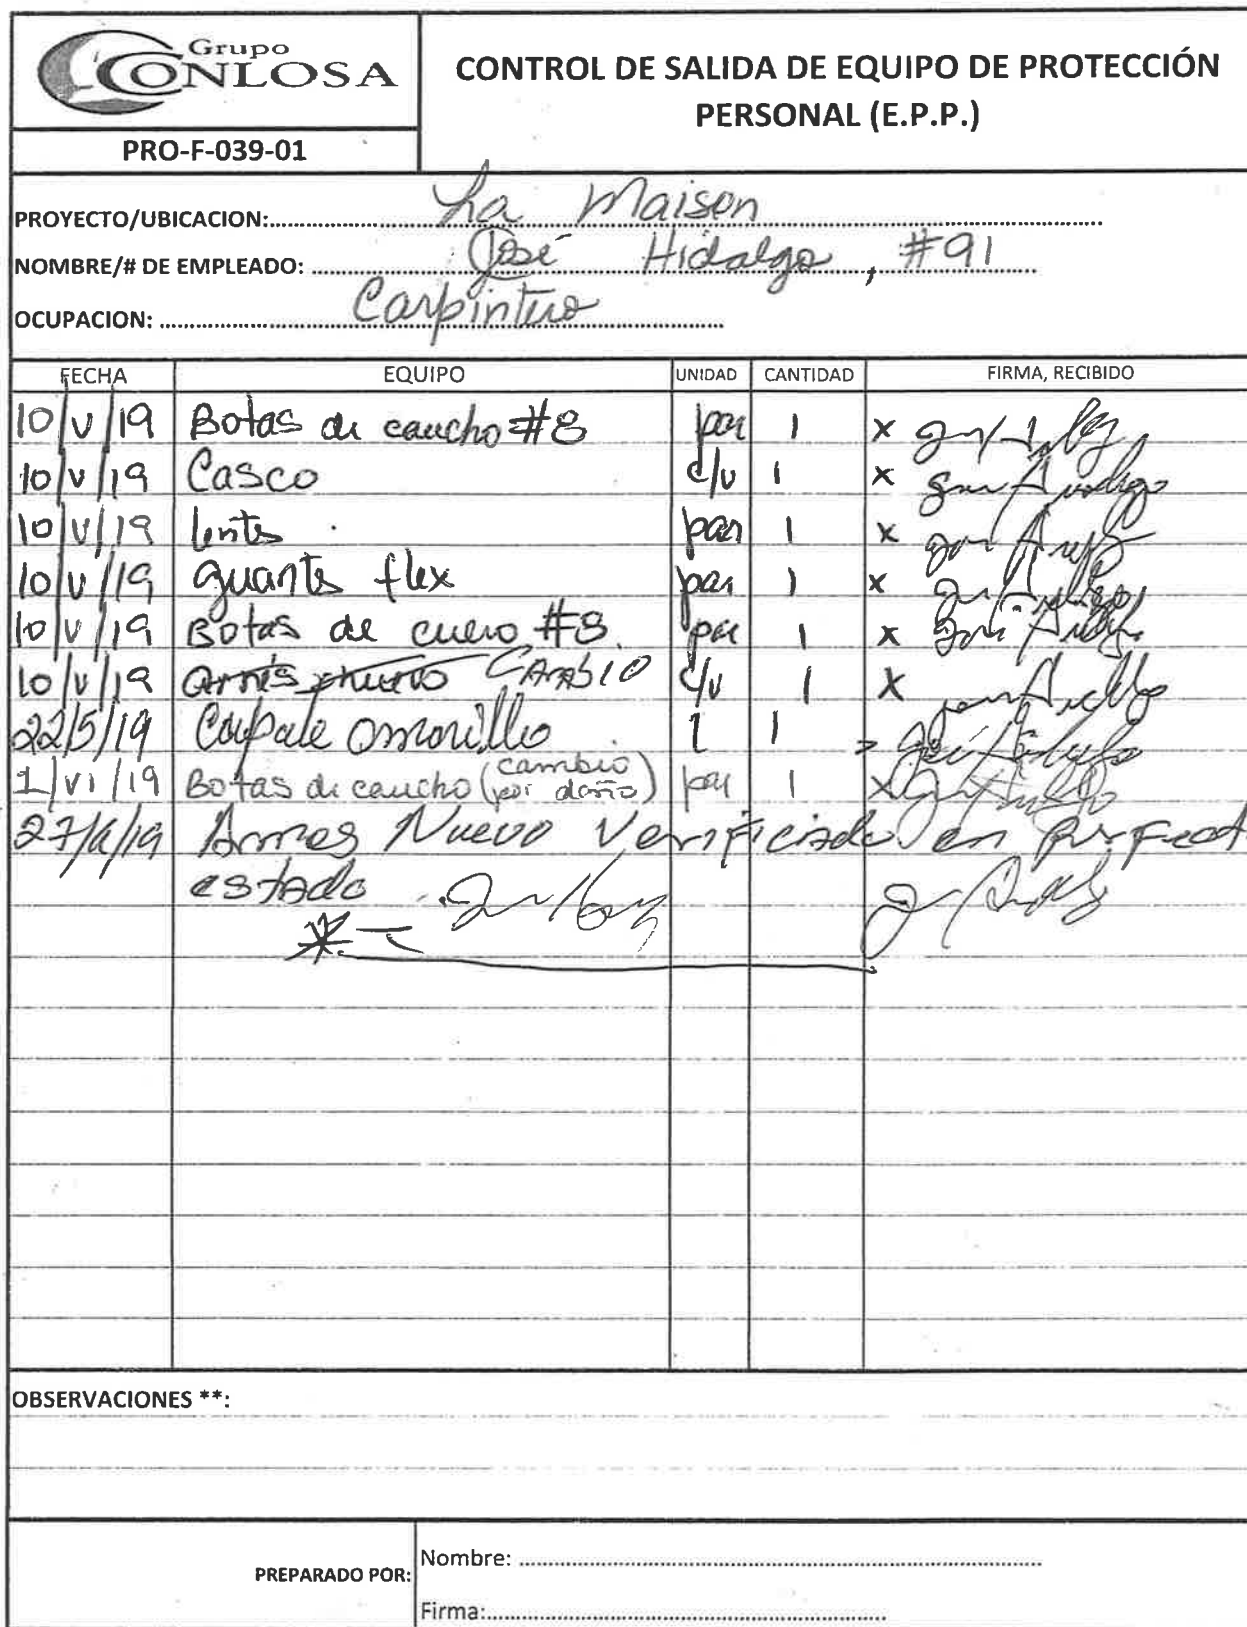 Grupo
CONLOSA
CONTROL DE SALIDA DE EQUIPO DE PROTECCIÓN
PERSONAL (E.P.P.)
PRO-F-039-01
PROYECTO/UBICACION: La Maison
NOMBRE/# DE EMPLEADO: José Hidalgo, #91
OCUPACION: Carpintero
FECHA EQUIPO UNIDAD CANTIDAD FIRMA, RECIBIDO
10/V/19 Botas de caucho #8 par 1 x
10/V/19 Casco c/u 1 x
10/V/19 lentes par 1 x
10/V/19 guantes flex par 1 x
10/V/19 Botas de cuero #8 par 1 x
10/V/19 Arnés CAMBIO c/u 1 X
22/5/19 amarillo 1 1
1/VI/19 Botas de caucho (cambio por daño) par 1 x
27/6/19 Arnes Nuevo Verificado en perfect
estado
OBSERVACIONES **:
PREPARADO POR:
Nombre:
Firma: